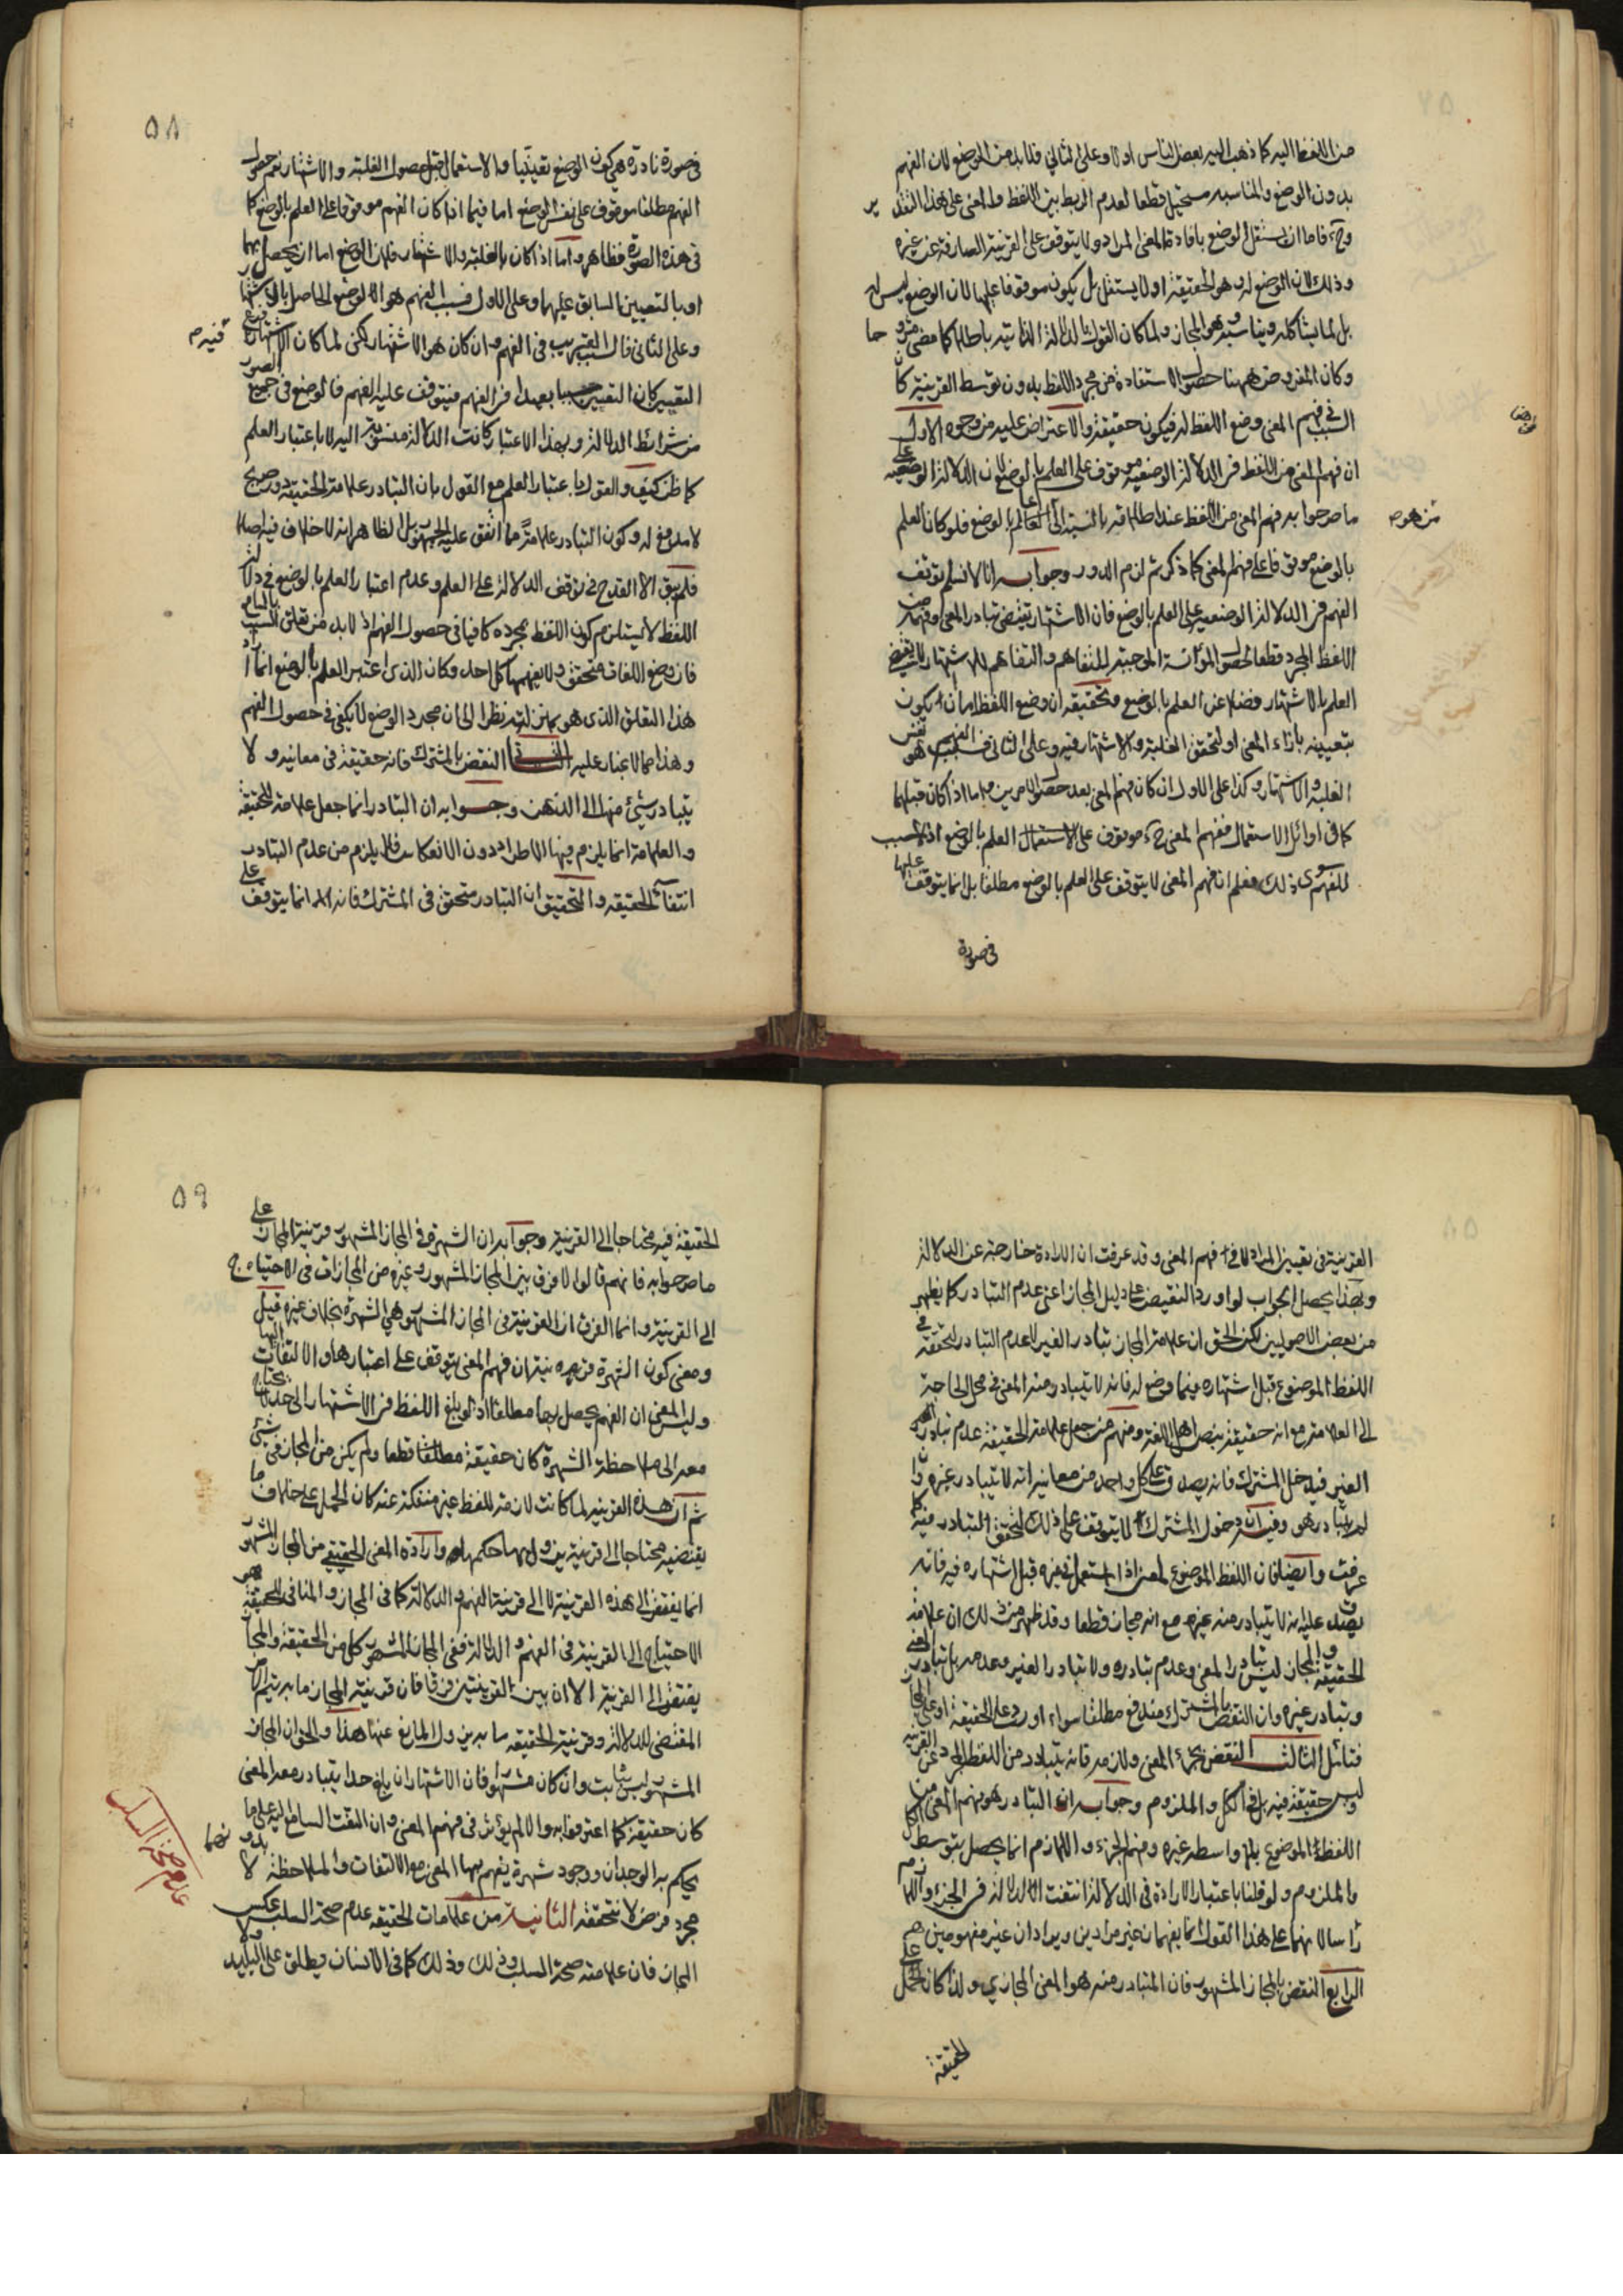 من اللفظ اليه كما ذهب اليه بعض الناس اولا وعلى الثاني فلا بد من الوضع لان الفهم
بدون الوضع والمناسبه مستحيل قطعا لعدم الربط بين اللفظ والمعنى على هذا التقدير
وح فاما ان يستقل الوضع بافادة المعنى المراد ولا يتوقف على القرينة الصارفة عن غيره
وذلك لان الوضع له وهو الحقيقة او لا يستقل بل يكون موقوفا عليها لان الوضع ليس له
بل لما يشاكله ويناسبه وهو المجاز ولما كان القول بالدلالة الذاتية باطلا كما مضى مشروحا
وكان المفروض ههنا حصول الاستفادة من مجرد اللفظ بدون توسط القرينة كان
السبب في فهم المعنى وضع اللفظ له فيكون حقيقة والاعتراض عليه من وجوه الاول
ان فهم المعنى من اللفظ في الدلالة الوضعيه موقوف على العلم بالوضع لان الدلالة الوضعيه على
ما صرحوا به فهم المعنى من اللفظ عند اطلاقه بالنسبة الى العالم بالوضع فلو كان العلم
بالوضع موقوفا على فهم المعنى كما ذكرتم لزم الدور وجوابه انا لا نسلم توقف
الفهم في الدلالة الوضعيه على العلم بالوضع فان الاشتهار يقتضى تبادر المعنى وفهمه من
اللفظ المجرد قطعا لحصول المؤانسة الموجبة للتفاهم والتفاهم للاشتهار لا يقتضى
العلم بالاشتهار فضلا عن العلم بالوضع وتحقيقه ان وضع اللفظ اما ان يكون
بتعيينه بازاء المعنى او لتحقق الغلبة والاشتهار فيه وعلى الثاني فسبب الفهم هو نفس
الغلبه والاشتهار وكذا على الاول ان كان فهم المعنى بعد حصول الامرين واما اذا كان قبلهما
كما في اوائل الاستعمال ففهم المعنى ح موقوف على الاستعمال العلم بالوضع اذ لا سبب
للفهم سوى ذلك فعلم ان فهم المعنى لا يتوقف على العلم بالوضع مطلقا بل انما يتوقف عليها
في صورة
٥٨
في صورة نادرة هي كون الوضع تعيينيا والاستعمال قبل حصول الغلبة والاشتهار نعم حصول
الفهم مطلقا موقوف على نفس الوضع اما فيما اذا كان الفهم موقوفا على العلم بالوضع كما
في هذه الصورة فظاهر واما اذا كان بالغلبة والاشتهار فلان الوضع اما ان يحصل بهما
او بالتعيين السابق عليهما وعلى الاول فسبب الفهم هو الوضع الحاصل بالاشتهار
وعلى الثاني فالسبب القريب في الفهم وان كان هو الاشتهار لكن لما كان الاشتهار فرع
التعيين كان التعيين سببا بعيدا في الفهم فيتوقف عليه الفهم فالوضع في جميع الصور
من شرائط الدلالة وبهذا الاعتبار كانت الدلالة منسوبة اليه لا باعتبار العلم
كما ظن كيف والقول باعتبار العلم مع القول بان التبادر علامة الحقيقة دور صريح
لا مدفع له وكون التبادر علامة مما اتفق عليه الجمهور بل الظاهر انه لا خلاف فيه اصلا
فلم يبق الا القدح في توقف الدلالة على العلم وعدم اعتبار العلم بالوضع في دلالة
اللفظ لا يستلزم كون اللفظ بمجرده كافيا في حصول الفهم اذ لا بد من تعلق السبب بالسامع
فان وضع اللغات متحقق ولا يفهمها كل احد وكان الذى اعتبر العلم بالوضع انما اراد
هذا التعلق الذى هو بمنزلته نظرا الى ان مجرد الوضع لا يكفى في حصول الفهم
وهذا مما لا غبار عليه الثاني النقض بالمشترك فانه حقيقة في معانيه ولا
يتبادر شيئ منها الى الذهن وجوابه ان التبادر انما جعل علامة للحقيقة
والعلامة انما يلزم فيها الاطراد دون الانعكاس فلا يلزم من عدم التبادر
انتفاء الحقيقه والتحقيق ان التبادر متحقق في المشترك فانه انما يتوقف على
القرينة في تعيين المراد لا في فهم المعنى وقد عرفت ان الارادة خارجة عن الدلالة
وبهذا يحصل الجواب لو اورد النقيض على دليل المجاز اعنى عدم التبادر كما يظهر
من بعض الاصوليين لكن الحق ان علامة المجاز تبادر الغير لا عدم التبادر لتحققه في
اللفظ الموضوع قبل اشتهاره فيما وضع له فانه لا يتبادر منه المعنى في محل الحاجة
الى العلامة مع انه حقيقة بنص اهل اللغة ومنهم من جعل علامة الحقيقة عدم تبادر
الغير فيدخل المشترك فانه يصدق على كل واحد من معانيه انه لا يتبادر غيره وان
لم يتبادر هو وفيه ان دخول المشترك لا يتوقف على ذلك لتحقق التبادر فيه كما
عرفت وايضا فان اللفظ الموضوع لمعنى اذا استعمل في غيره قبل اشتهاره فيه فانه
يصدق عليه انه لا يتبادر منه غيره مع انه مجاز قطعا وقد ظهر من ذلك ان علامة
الحقيقة والمجاز ليس تبادر المعنى وعدم تبادره ولا تبادر الغير وعدمه بل تبادر المعنى
وتبادر غيره وان النقض بالمشترك مندفع مطلقا سواء اورد على الحقيقة او على المجاز
فتأمل الثالث النقض بجزء المعنى ولازمه فانه يتبادر من اللفظ المجرد عن القرينه
وليس حقيقة فيه بل في الكل والملزوم وجوابه ان التبادر هو فهم المعنى من
اللفظ الموضوع بلا واسطه غيره وفهم الجزء واللازم انما يحصل بتوسط الكل
والملزوم ولو قلنا باعتبار الارادة في الدلالة انتفت الدلالة في الجزء واللازم
رأسا لانهما على هذا القول انما يفهمان غير مرادين ويرادان غير مفهومين
الرابع النقض بالمجاز المشهور فان المتبادر منه هو المعنى المجازي ولذا كان الحمل على
الحقيقة
٥٩
الحقيقة فيه محتاجا الى القرينة وجوابه ان الشهرة في المجاز المشهور قرينة المجاز على
ما صرحوا به فانهم قالوا لا فرق بين المجاز المشهور وغيره من المجازات في الاحتياج
الى القرينة وانما الفرق ان القرينة في المجاز المشهور هي الشهرة بخلاف غيره قيل
ومعنى كون الشهرة قرينة ان فهم المعنى يتوقف على اعتبارها والالتفات اليها
وليس المعنى ان الفهم يحصل بها مطلقا اذ لو بلغ اللفظ في الاشتهار الى حد لا يحتاج
معه الى ملاحظة الشهرة كان حقيقة مطلقا قطعا ولم يكن من المجاز في شئ
ثم ان هذه القرينه لما كانت لازمة للفظ غير منفكة عنه كان الحمل على خلاف ما
يقتضيه محتاجا الى قرينة يزول بها حكمها وارادة المعنى الحقيقي من المجاز المشهور
انما يفتقر الى هذه القرينة لا الى قرينة الفهم والدلالة كما في المجاز والمنافى للحقيقة هو
الاحتياج الى القرينة في الفهم والدلالة ففي المجاز المشهور كل من الحقيقة والمجاز
يفتقر الى القرينة الا ان بين القرينتين فرقا فان قرينة المجاز ما به يتم الامر
المقتضى للدلالة وقرينة الحقيقه ما به يزول المانع عنها هذا والحق ان المجاز
المشهور ليس بثابت وان كان مشهورا فان الاشتهار ان بلغ حدا يتبادر معه المعنى
كان حقيقة كما اعترفوا به والا لم يؤثر في فهم المعنى وان التفت السامع اليه على ما
يحكم به الوجدان ووجود شهرة يفهم بها المعنى مع الالتفات والملاحظة لا بدونهما
مجرد فرض لا نتحققه الثانية من علامات الحقيقه عدم صحة السلب عكس
المجاز فان علامته صحة السلب وذلك كما في الانسان يطلق على البليد
عدم صحة السلب